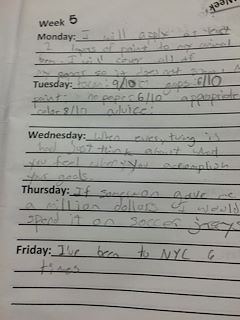 Week 5
Monday: I will apply at least
2 layers of paint to my animal
I will cover all of
my gaps so it does not show
Tuesday: form: 9/10 gaps: 5/10
paint: no paper: 6/10 appropriate
color 8/10 advice:
Wednesday: When everything is
had just think about what
you feel when you accomplish
your goals.
Thursday: If someone gave me
a million dollars I would
spend it on soccer jerseys
Friday: I've been to NYC 6
times